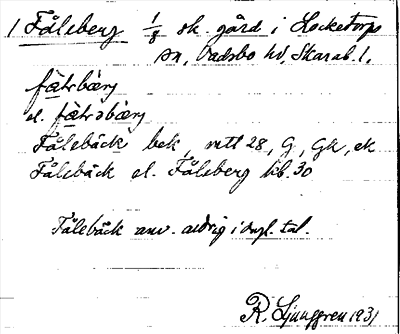 1 Fåleberg 1/8 sk. gård i Hocketorps
sn, Vadsbo hd, Skarab. l.
få̀ləbærj
el. få̀ləbærj
Fålebäck bek, mtl 28, G, Gk, ek
Fålebäck el. Fåleberg kb. 30
Fålebäck anv. aldrig i dagl. tal.
R. Ljunggren 1931